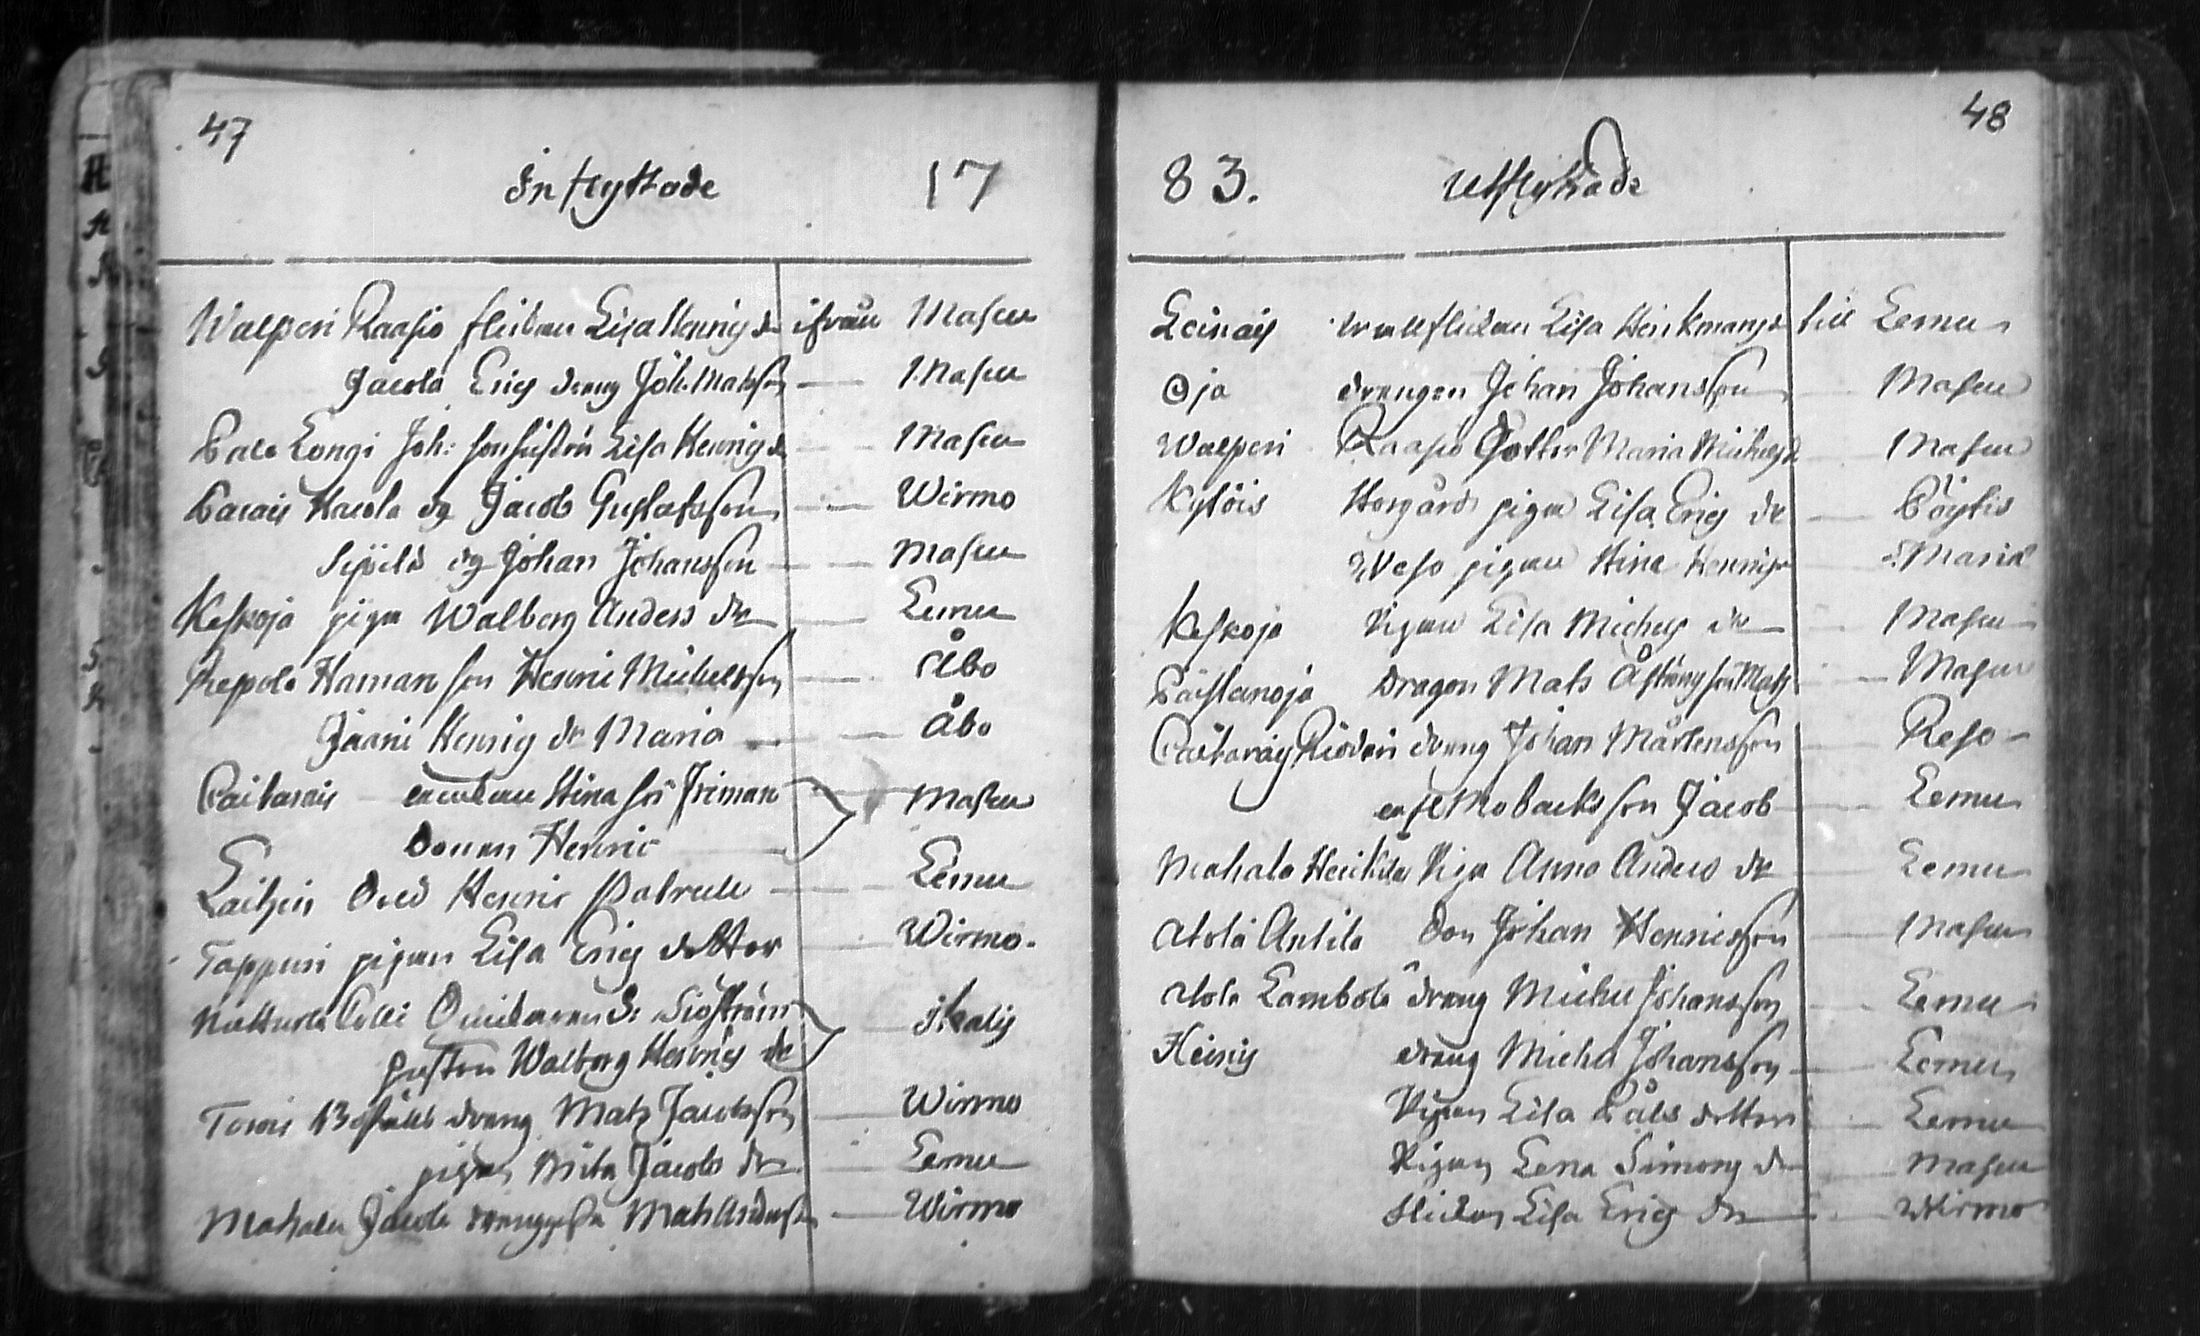 47
Inflyttade 17
Walperi Raasio flickan Lisa Henrigs dr ifrån Masku
Jacola Erics dreng Joh: Matsson Masku
Palo Longi Joh: son hustru Lisa Henrigs dr Masku
Parais Karola dg Jacob Gustafsson Wirmo
Sipilä dg Johan Johansson Masku
Keskoja piga Walborg Anders dr Lemu
Repola Haman son Henric Michelsson Åbo
Jaani Henrig dr Maria Åbo
Paikarais enckan Stina Friman
Sonen Henric Masku
Laitzin Henric Lemu
Tappuri pigan Lisa Erics dotter Wirmo.
Nutturla Sjöström
hustru Walborg Henrigs dr Ikalis
Tomis Boställ dreng Mats Jacobsson Wirmo
pigan Brita Jacobs dr Lemu
Mahala Jacola Mats Andersson Wirmo
48
83. Utflyttade
Leinais flickan Lisa Henkmans dr till Lemu
Oja drengen Johan Johansson Masku
Walperi Raasio dotter Maria Michels dr Masku
Kylöis Horgård pigan Lisa Erics dr Pöytis
Weso pigan Stina Henrigs dr S: Mariæ
Keskoja Pigan Lisa Michels dr Masku
Päistanoja Dragon Mats Åströms son Mats Masku
Paikarais dreng Johan Mårtensson Reso
Mobacka son Jacob Lemu
Mahala Heickilä Piga Anna Anders dr Lemu
Atola Antila Son Johan Henricsson Masku
Atola Lambola dreng Michel Johansson Lemu
Heinis dreng Michel Johansson Lemu
Pigan Lisa Påls dotter Lemu
Pigan Lena Simons dr Masku
flickan Lisa Erics dr Wirmo